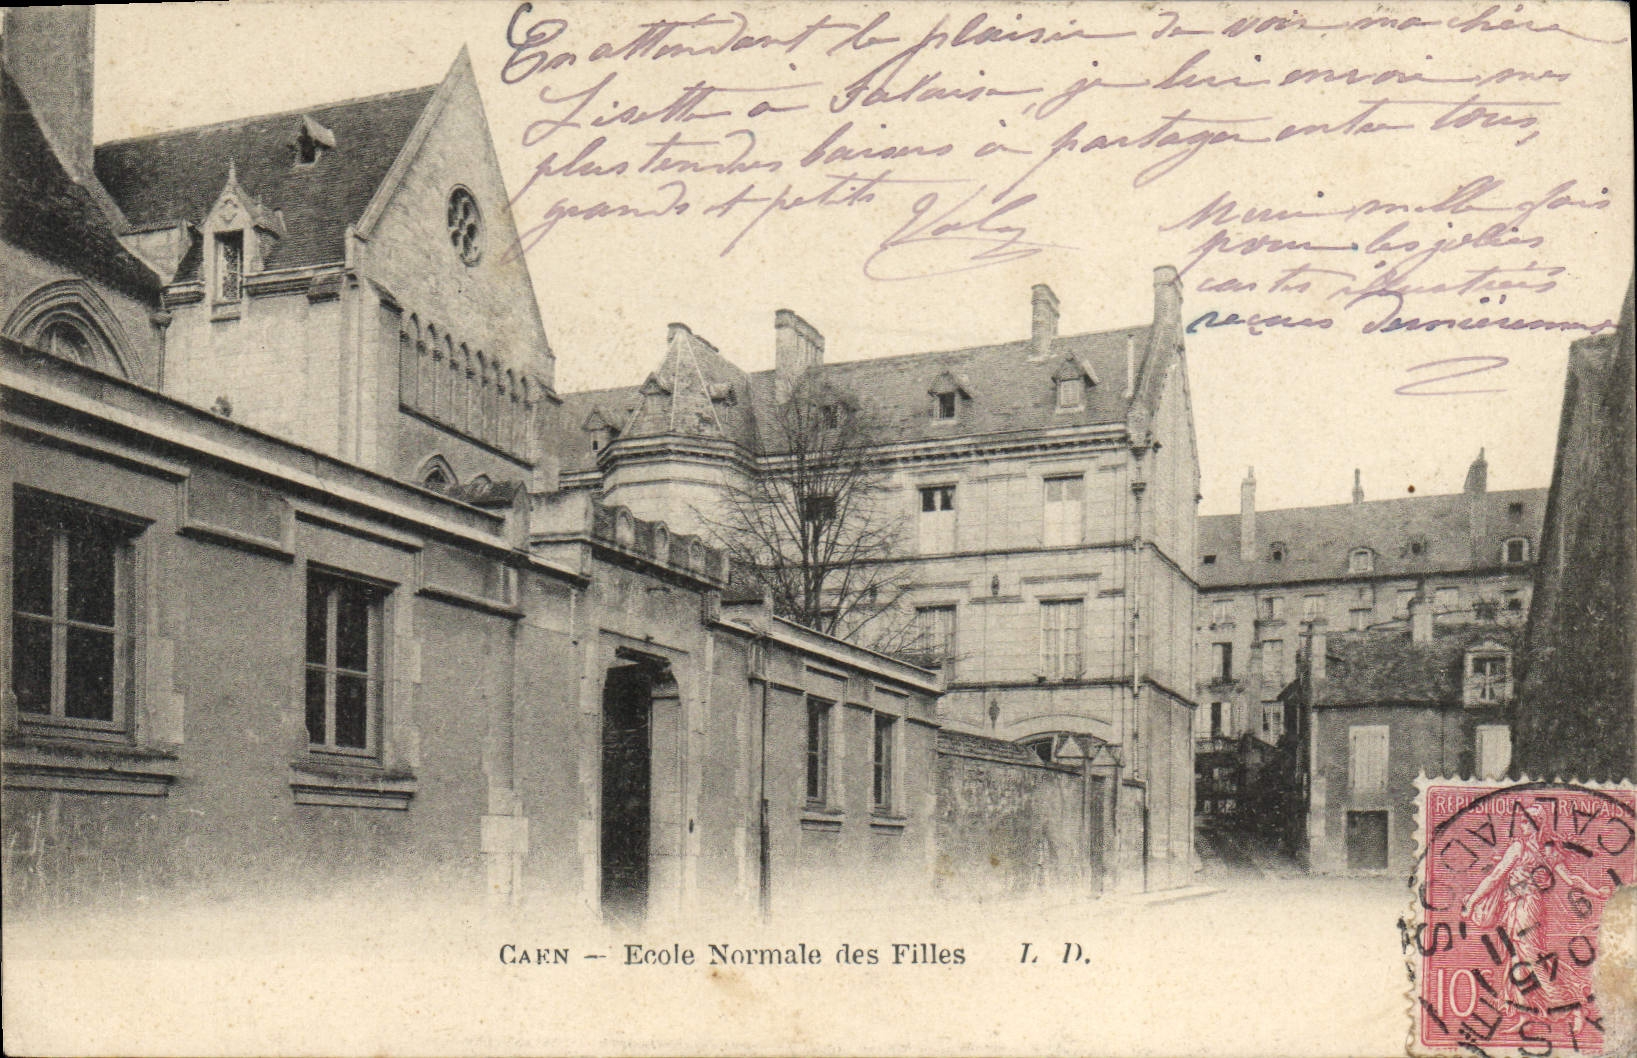 En attendant le plaisir de voir ma chère
Lisette à Falaise, je lui envoie mes
plus tendres baisers à partager entre tous,
grands et petits
Merci mille fois
pour les jolies
cartes illustrées
reçues dernièrement
CAEN — Ecole Normale des Filles L D.
RÉPUBLIQUE FRANÇAISE
CALVADOS
10